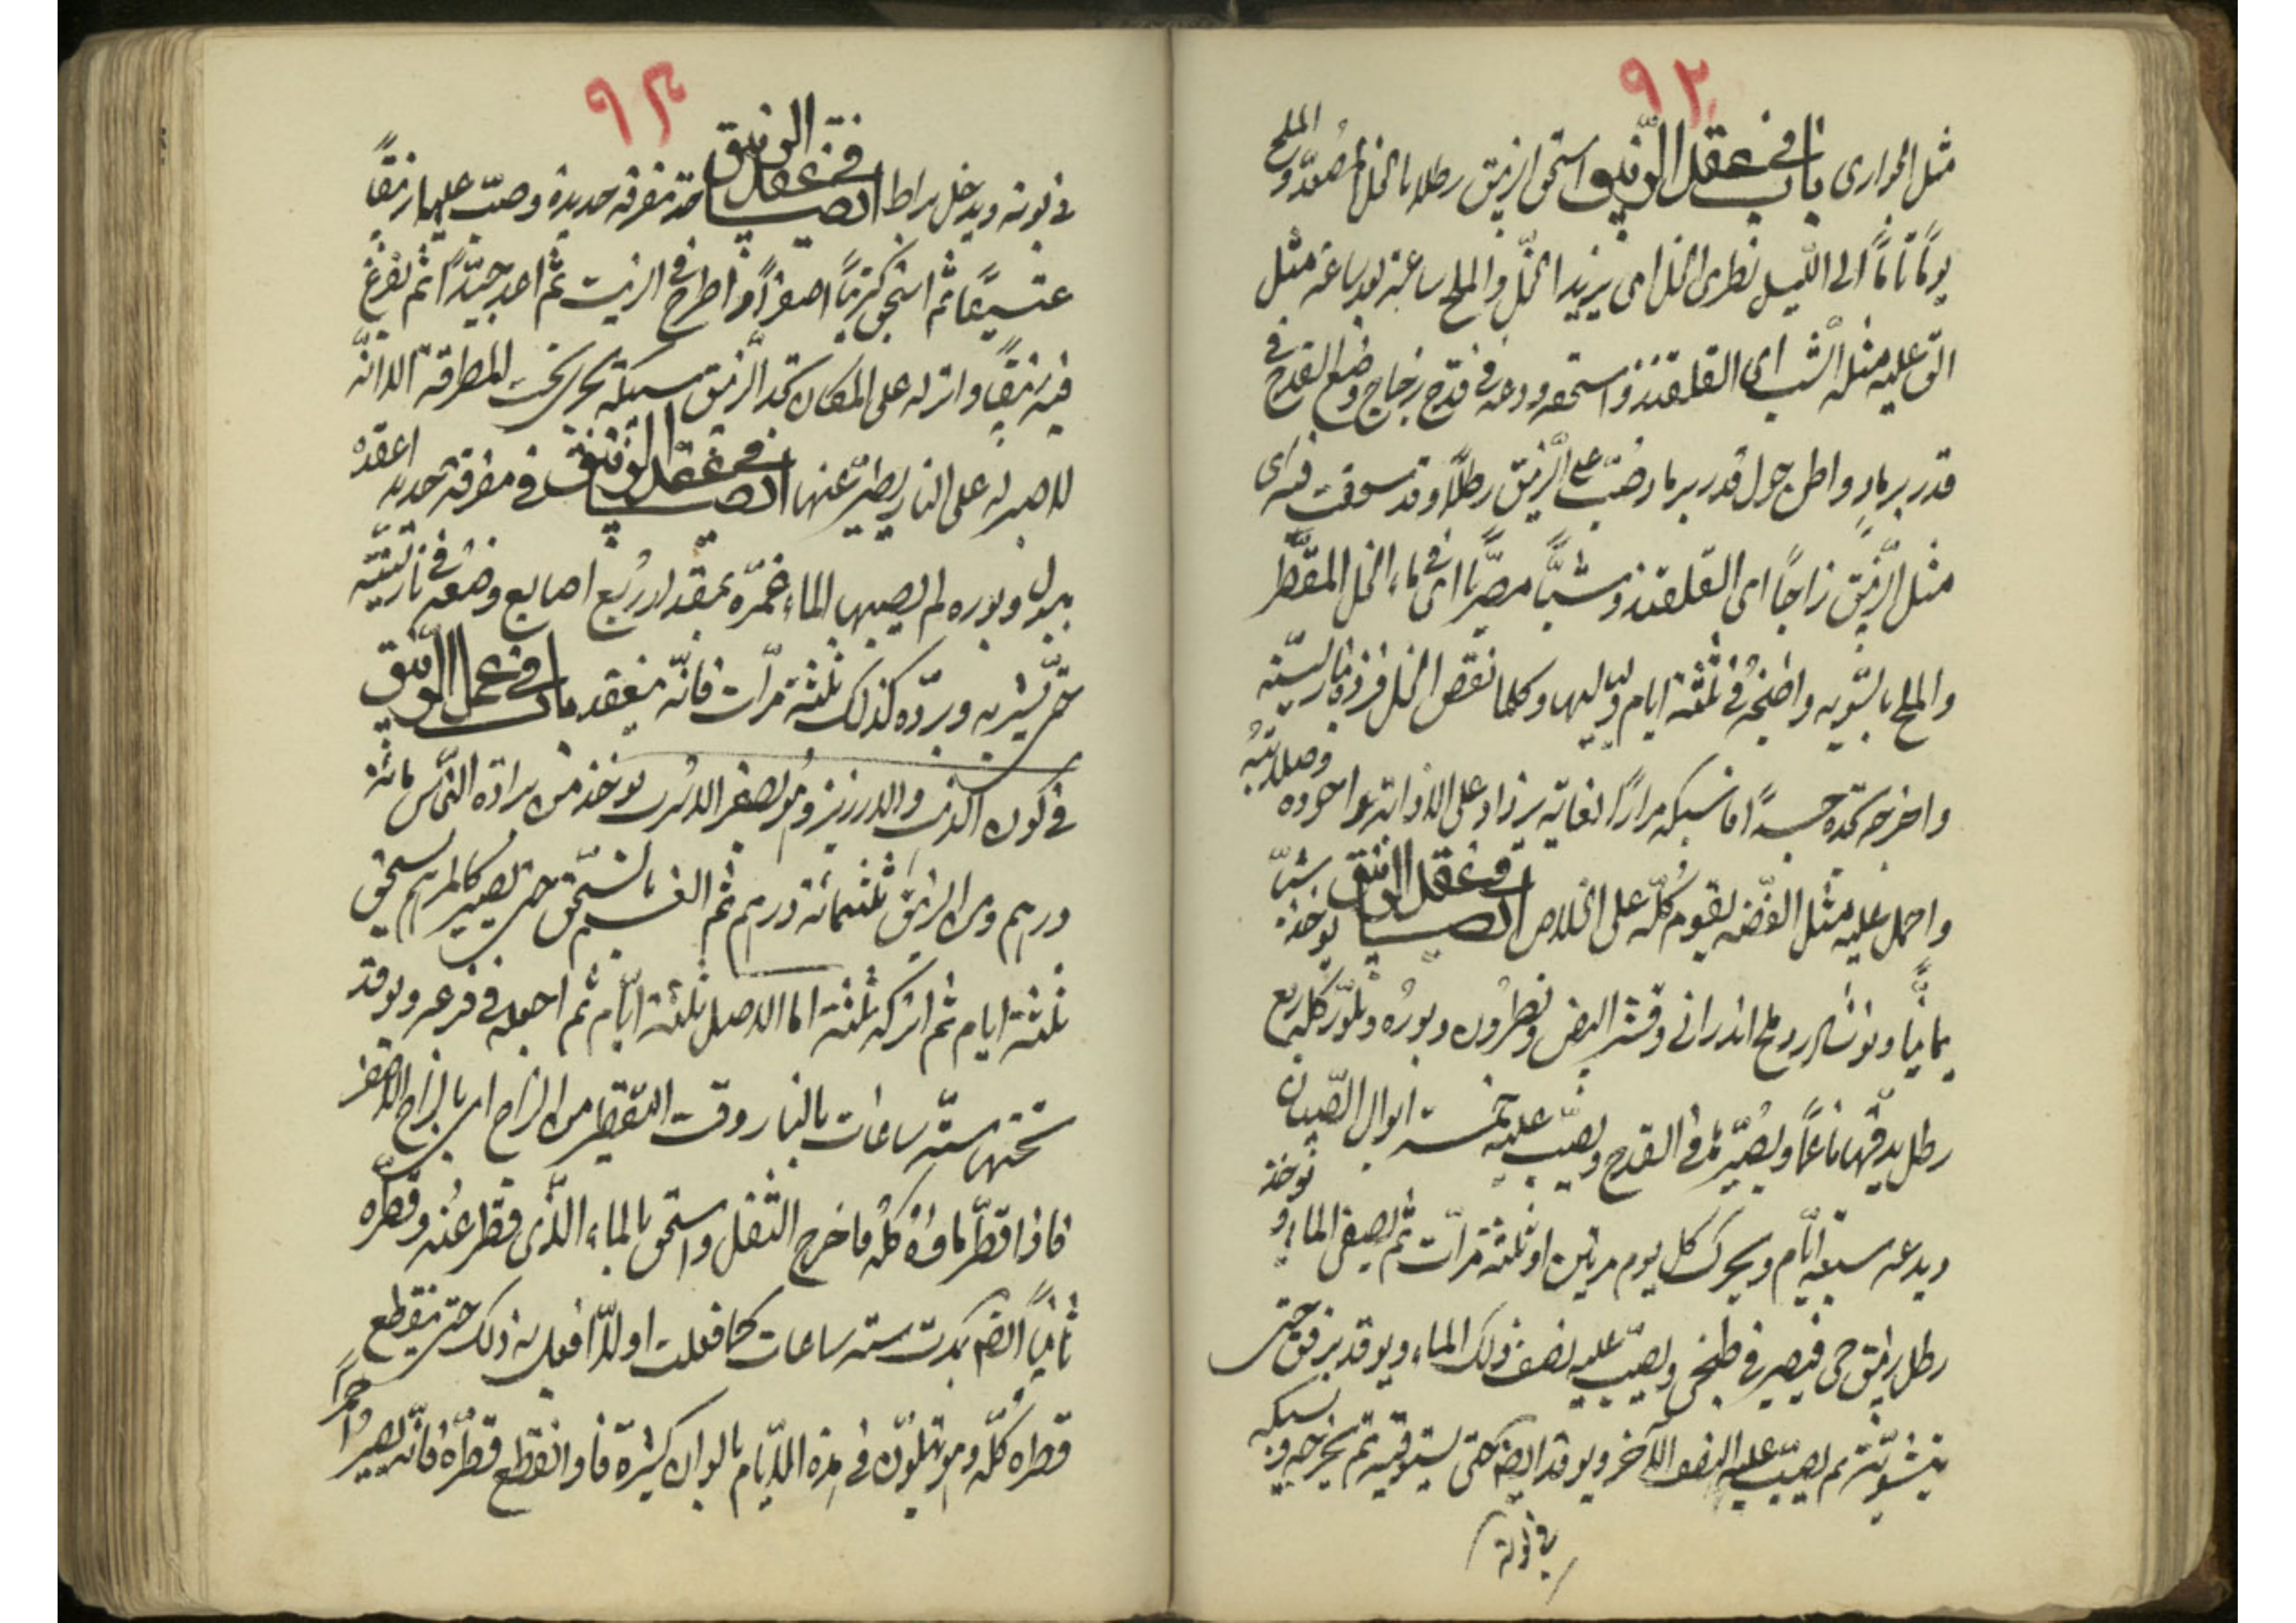 ٩٢
مثل الحوارى باب فى عقد الزيبق استحق الزيبق رطلا بالخل المصعد والملح
يومًا تامًا الى الليل نظرى الخل اى يزيد الخل والملح ساعة بعد ساعة مثل
الق عليه مثله الشب اى القلقند واستحقه ودعه فى قدح زجاج وضع القدح فى
قدر برماد واطل حول قدر برماد وصب على الزيبق رطلًا وقد سحقت فيه اى
مثل الزيبق زاجًا اى القلقند وشبًّا مصريًّا اى فى ماء الخل المقطر
والملح بالسويه واطبخه فى ثلثة ايام ولياليها وكلما نقص الخل فزده نار لينة
واخرجه تجده جسدًا فاسبكه مرارًا لغاية يزداد على الاذابة جوده وصلابته
واحمل عليه مثل الفضة يقوم كله على الخلاص ايضا فى عقد الزيبق يوخذ شبّ
يمانيًّا ونوشادر وملح اندرانى وقشر البيض ونطرون وبوره وتلوّر كله ربع
رطل يدقها ناعمًا ويصيّرها فى القدح ويصبّ عليه خمسة ابوال الصبيان
ويدعه سبعة ايّام ويحرك كل يوم مرتين او ثلثة مرّات ثم يصفى الماء ويوخذ
رطل زيبق حى فيصير فى طنجير ويصبّ عليه نصف ذلك الماء ويوقد برفق حتى
ينشويّه ثم يصبّ عليه النصف الآخر ويوقد ايضا حتى يستوفيه ثم يخرجه ويسبكه
فى بوتة
٩٣
فى بوتة ويدخل براطا ايضا فى عقد الزيبق خذ مغرفة حديدة وصبّ عليها زيتًا
عتيقًا ثم استحق كبريتًا اصفرًا واطرح فى الزيت ثم اعد جيّدًا ثم تفرغ
فيه زيبقًا واتركه على المكان تجد الزيبق سبيكة تجرى تحت المطرقة الا انّه
لا صبر له على النار يطير عنها ايضا فى عقد الزيبق فى مغرفة حديد اعقده
ببول وبوره لم يصبها الماء غمره بمقدار ربع اصابع وضعه فى نار لينة
حتى يشربه وردّه كذلك ثلثة مرّات فانّه ينعقد باب فى عمل الزيبق
فى كون الذهب والدرريز وهو يصفر الاسرب يوخذ من برادة النحاس مائة
درهم ومن الزيبق ثلثمائة درهم ثم الغسيم بالسحق حتى تصير كالمرهم يسحق
ثلثة ايام ثم اتركه ثلثة اما الاصل ثلثة ايّام ثم اجعله فى قرعه ويوقد
تحتها ستّة ساعات بالنار وقت التقطير من الزاج اى بالزاج الاصفر
فاذا قطّر ماؤه كله فاخرج الثفل واستحق بالماء الذى قطّر عنه وقطّره
ثانيًا ايضا بمدت ستة ساعات كما فعلت اولًا افعل به ذلك حتى ينقطع
قطره كلّه وهو يتلوّن فى هذه الايّام بالوان كثيرة فاذا انقطع قطره فانّه يصير احمرًا